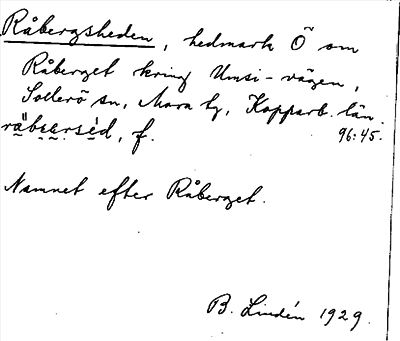 Råbergsheden, hedmark Ö om
Råberget kring Umsi-vägen,
Sollerö sn, Mora tg, Kopparb. län.
räbεεrsèd, f. 96:45.
Namnet efter Råberget.
B. Lindén 1929.